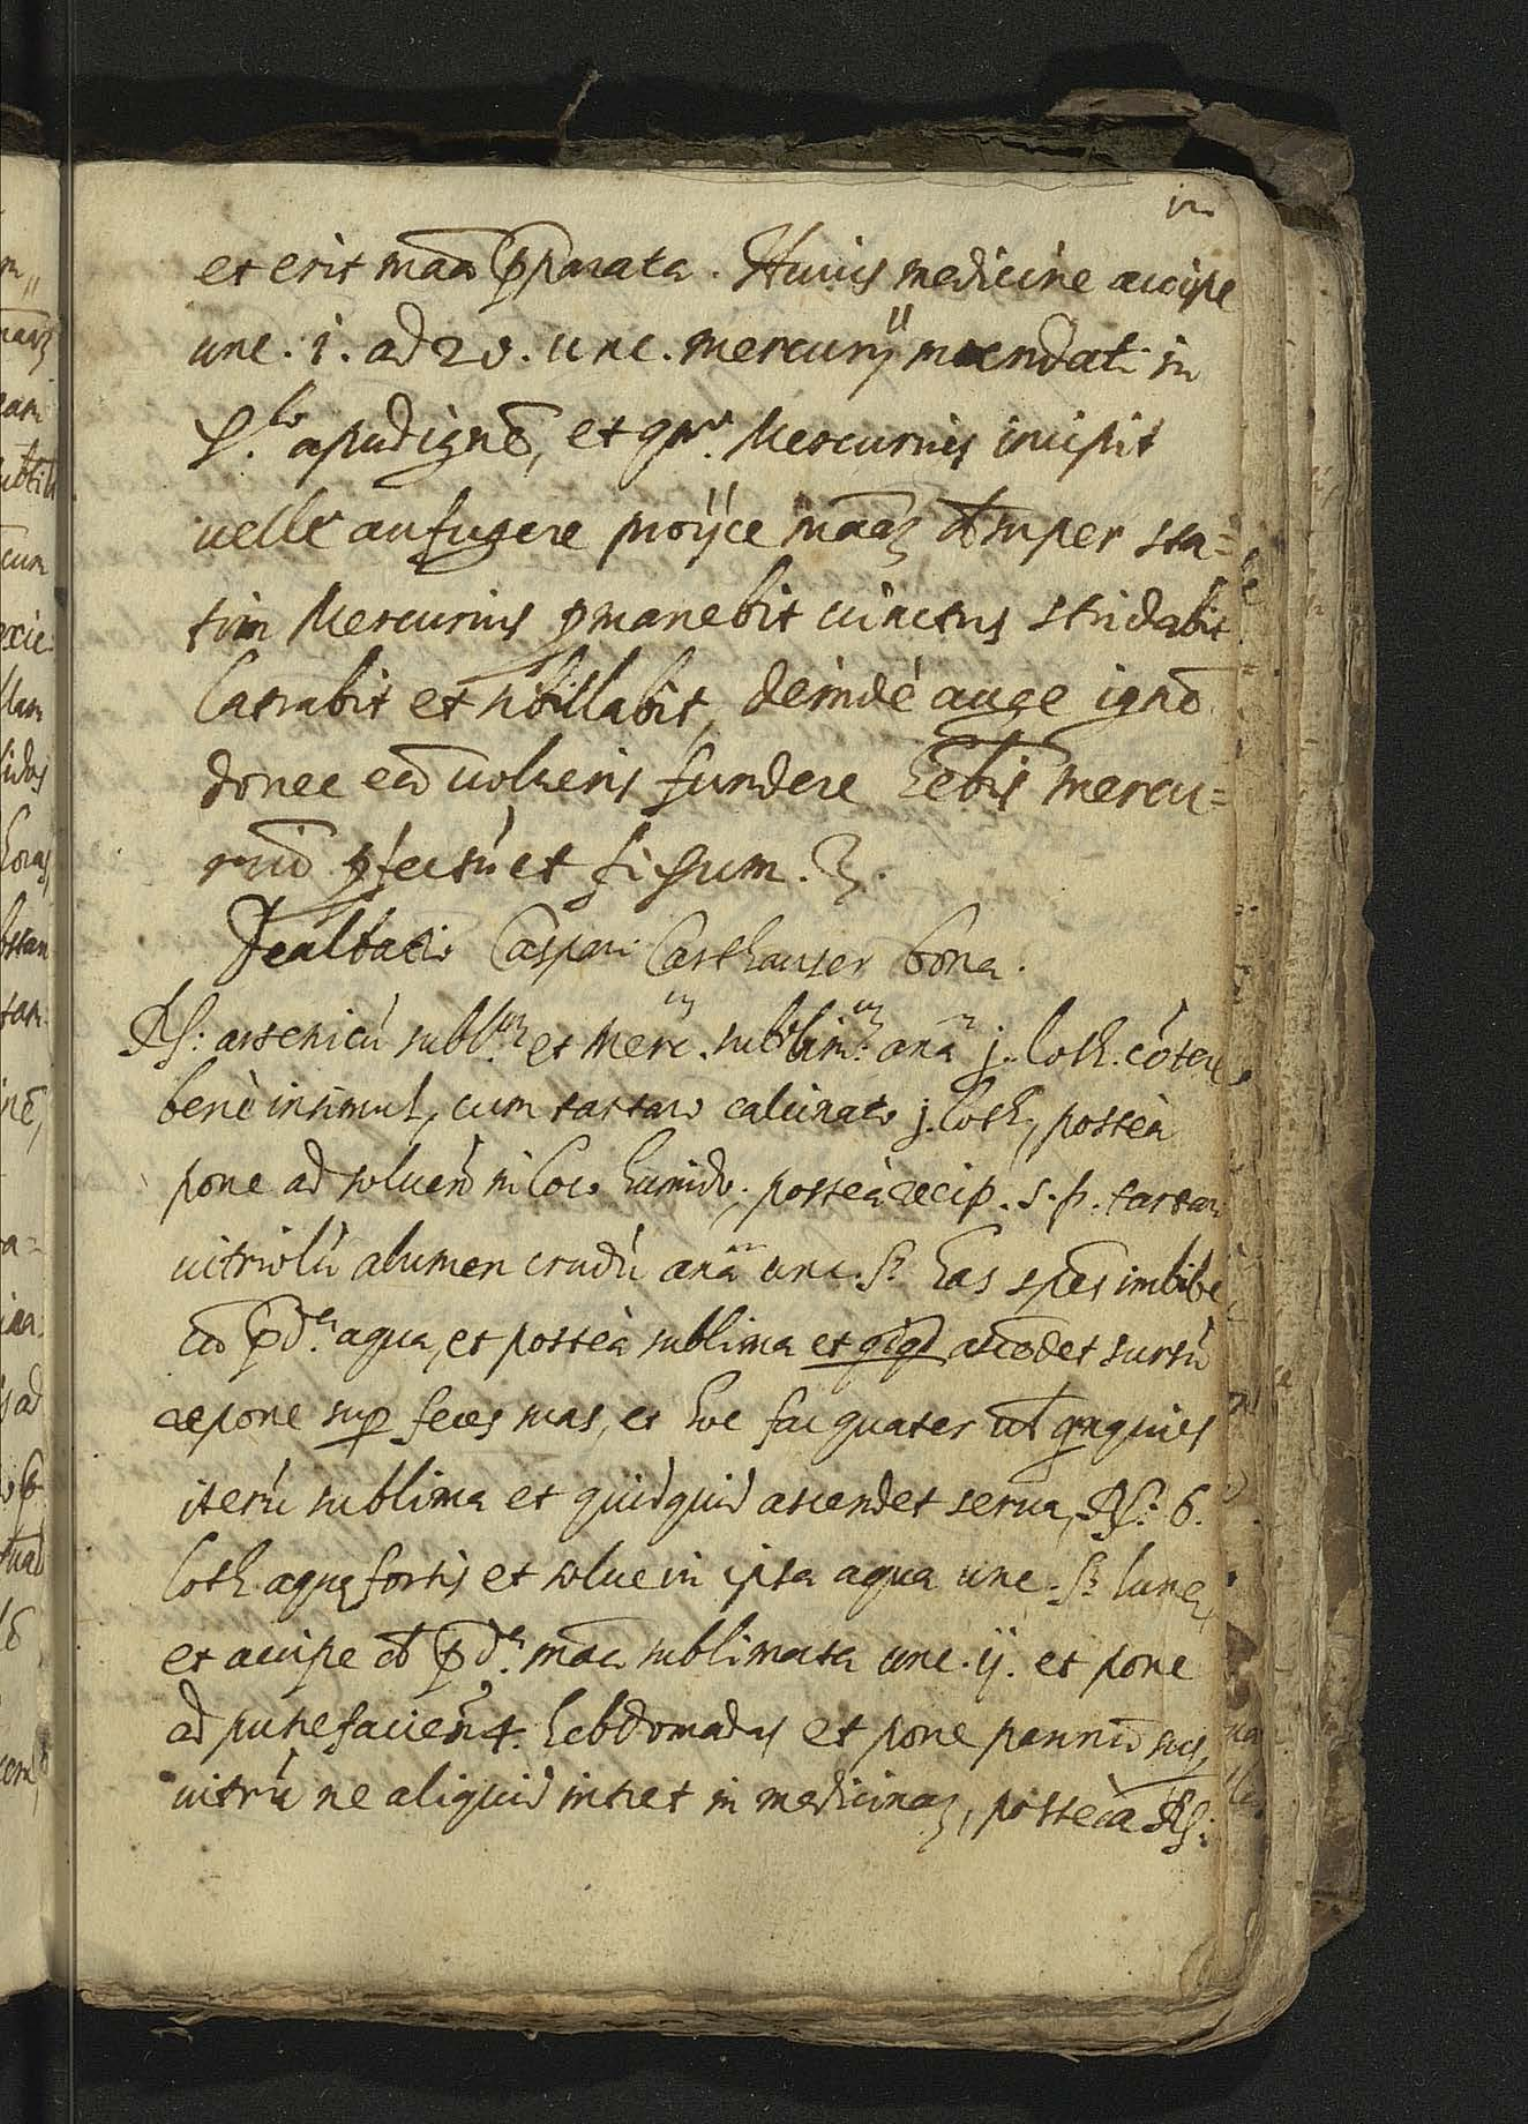 et erit maā p̄parata. Huius medicine accipe
unc. 1. ad 20. unc. mercurÿ mundati in
apud ignē, et qn̄. Mercurius incipit
uelle aufugere proÿce māā desuper sta=
tim Mercurius ꝑmanebit uinctus stridabit
latrabit et sibillabit, deindè auge ignē
donec eū uolueris fundere hēbis mercu=
riū ꝑfectū et fixum.
Dealbatio Caspari Carthauser bona.
R: arsenicū subl. et merc. sublim. anā j. loth. cōtere
benè insimul, cum tartaro calcinato j. loth, posteà
pone ad soluēd in loco humido, posteà recip. s. p. tartari
uitriolū alumen crudū anā unc. ß has sp̄es imbibe
cū p̄d. aqua, et posteà sublima et qiqd ascēdet sursū
repone suꝑ feces suas, et hoc fac quater
iterū sublima et quidquid ascendet serua, R: 6.
loth. aquę fortis et solue in ipsa aqua unc. ß lune,
et accipe de p̄d. māā sublimata unc. ij. et pone
ad putrefaciēd 4. hebdomadas et pone pannū sup
uitrū ne aliquid intret in medicinā, posteà R: